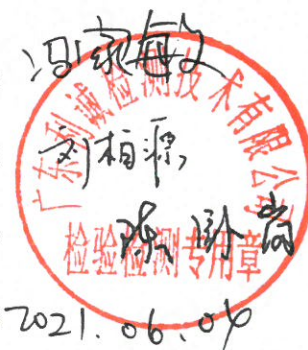 冯家敏
广东利诚检测技术有限公司
刘相源
陈
检验检测专用章
2021.06.04